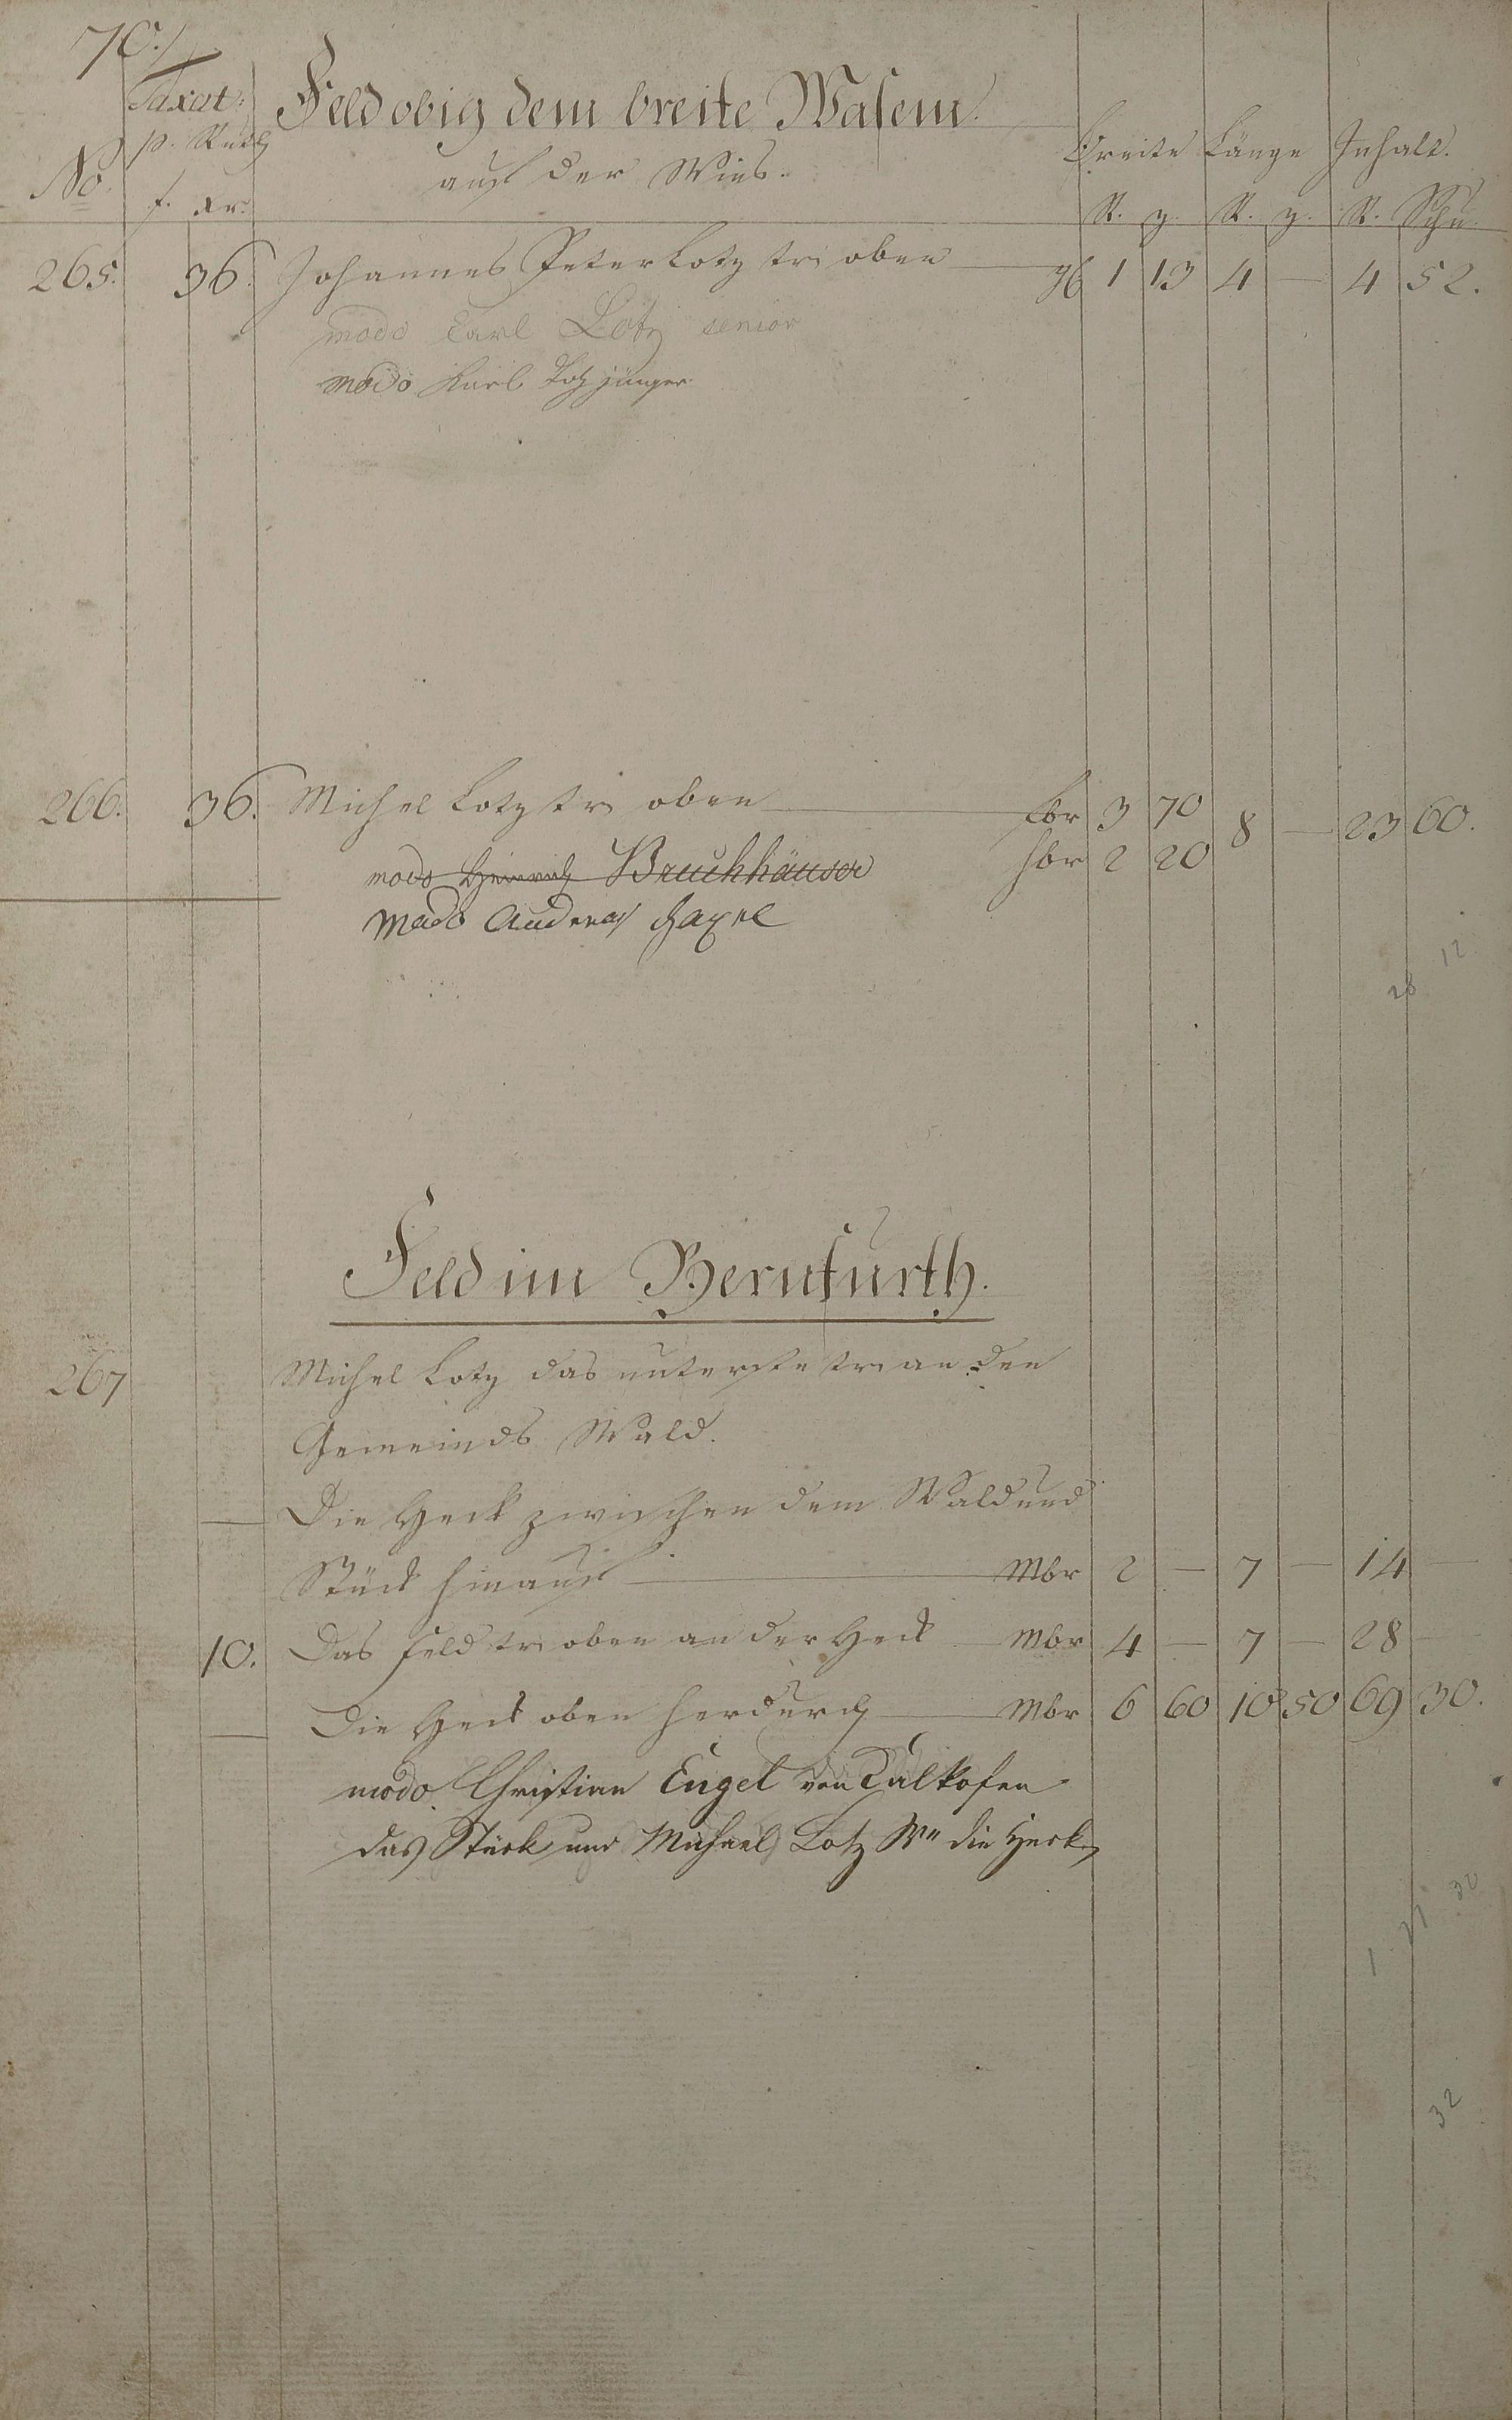 70.
Taxat: Feld obig dem breite Wasem.
p. Ruth auf der Wies. Breite Länge Inhalt.
No. f. xr. R. R. R. Schu
265. 36. Johannes Peter Lotz oben gl 1 13 4 — 4 52.
modo Carl Lotz senior
modo Karl Lotz jünger
266. 36. Michel Lotz oben fbr 3 70 8 — 23 60.
modo Heinrich Bruchhäuser hbr 2 20
modo Andreas Haxel
12
28
Feld im Bernfurth.
267 Michel Lotz das unterste an den
Gemeinds Wald.
— Die Heck zwischen dem Wald und
Stück hinauf — Mbr 2 — 7 — 14 —
10. Das Feld oben an der Heck — Mbr 4 — 7 — 28 —
— Die Heck oben herdurch — Mbr 6 60 10 50 69 30.
modo Christian Engel von Kalkofen
das Stück und Michael Lotz Wtt die Heck
32